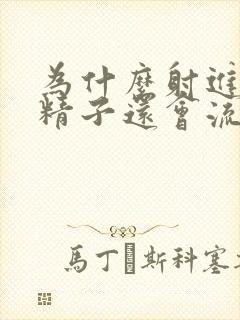 為什麼射進
精子還會流
馬丁 斯科塞